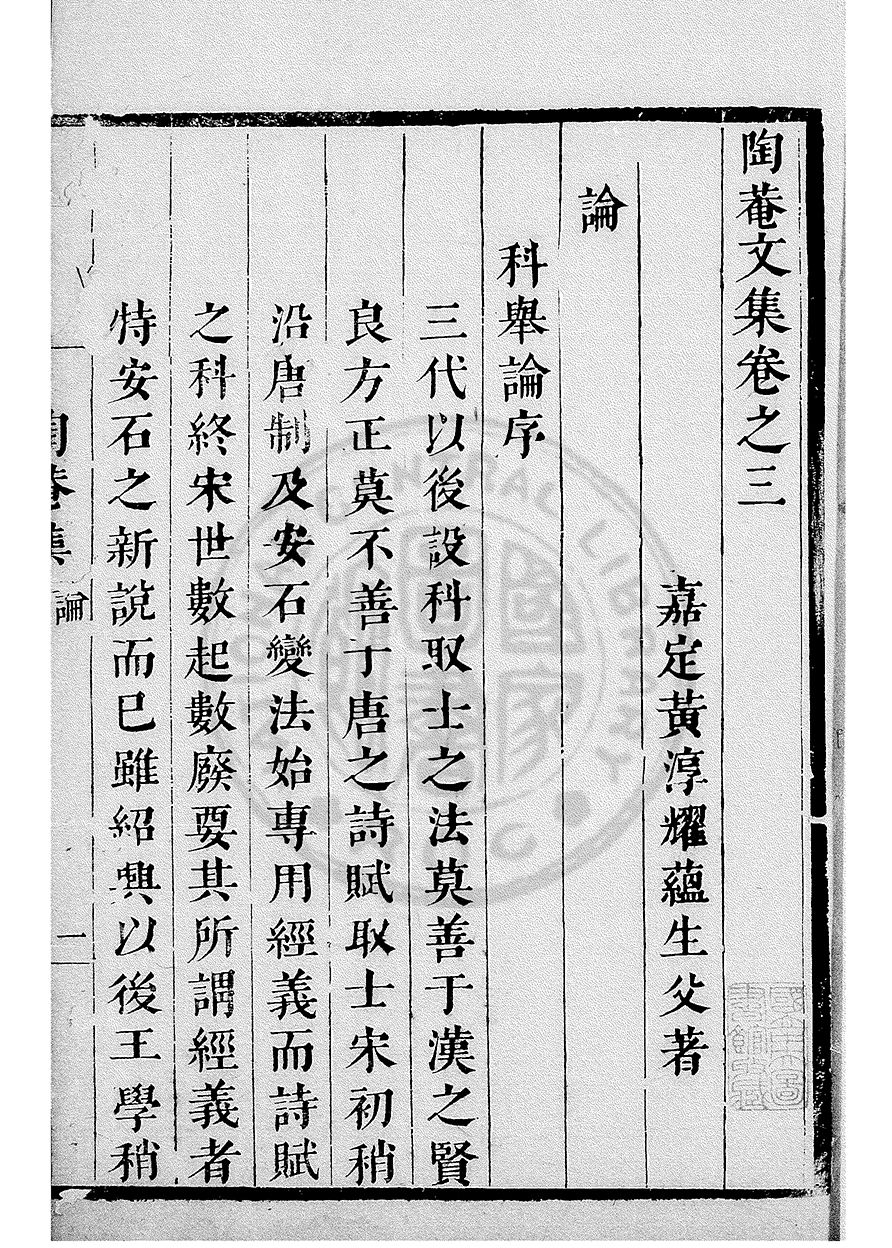 陶菴文集卷之三
嘉定黃淳耀蘊生父著
論
科舉論序
三代以後設科取士之法莫善于漢之賢
良方正莫不善于唐之詩賦取士宋初稍
沿唐制及安石變法始專用經義而詩賦
之科終宋世數起數廢要其所謂經義者
恃安石之新說而已雖紹興以後王學稍
陶菴集
論
一
國家圖書館
國立中央圖書館收藏